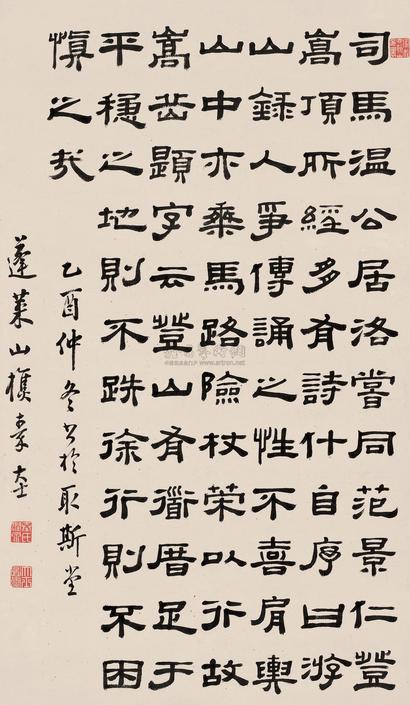 司馬温公居洛嘗同范景仁登
嵩頂所經多有詩什自序曰游
山錄人爭傳誦之性不喜肩輿
山中亦乘馬路險杖策以行故
嵩岳題字云登山有衜厝足于
平穩之地則不跌徐行則不困
慎之哉
乙酉仲冬書於取斯堂
蓬萊山樵